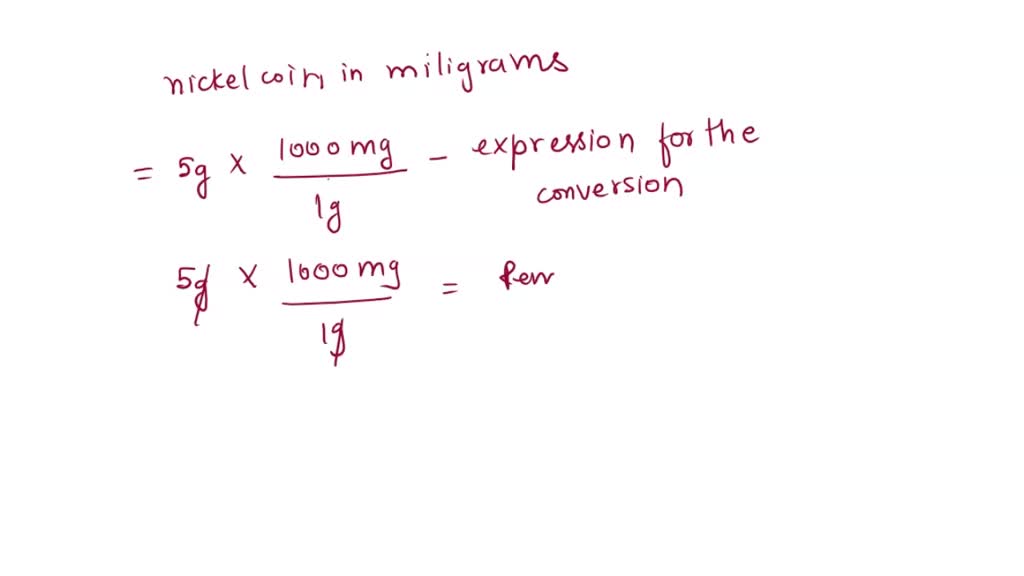 nickel coin in miligrams
= 5g × 1000 mg / 1g – expression for the
conversion
5g × 1000 mg / 1g =